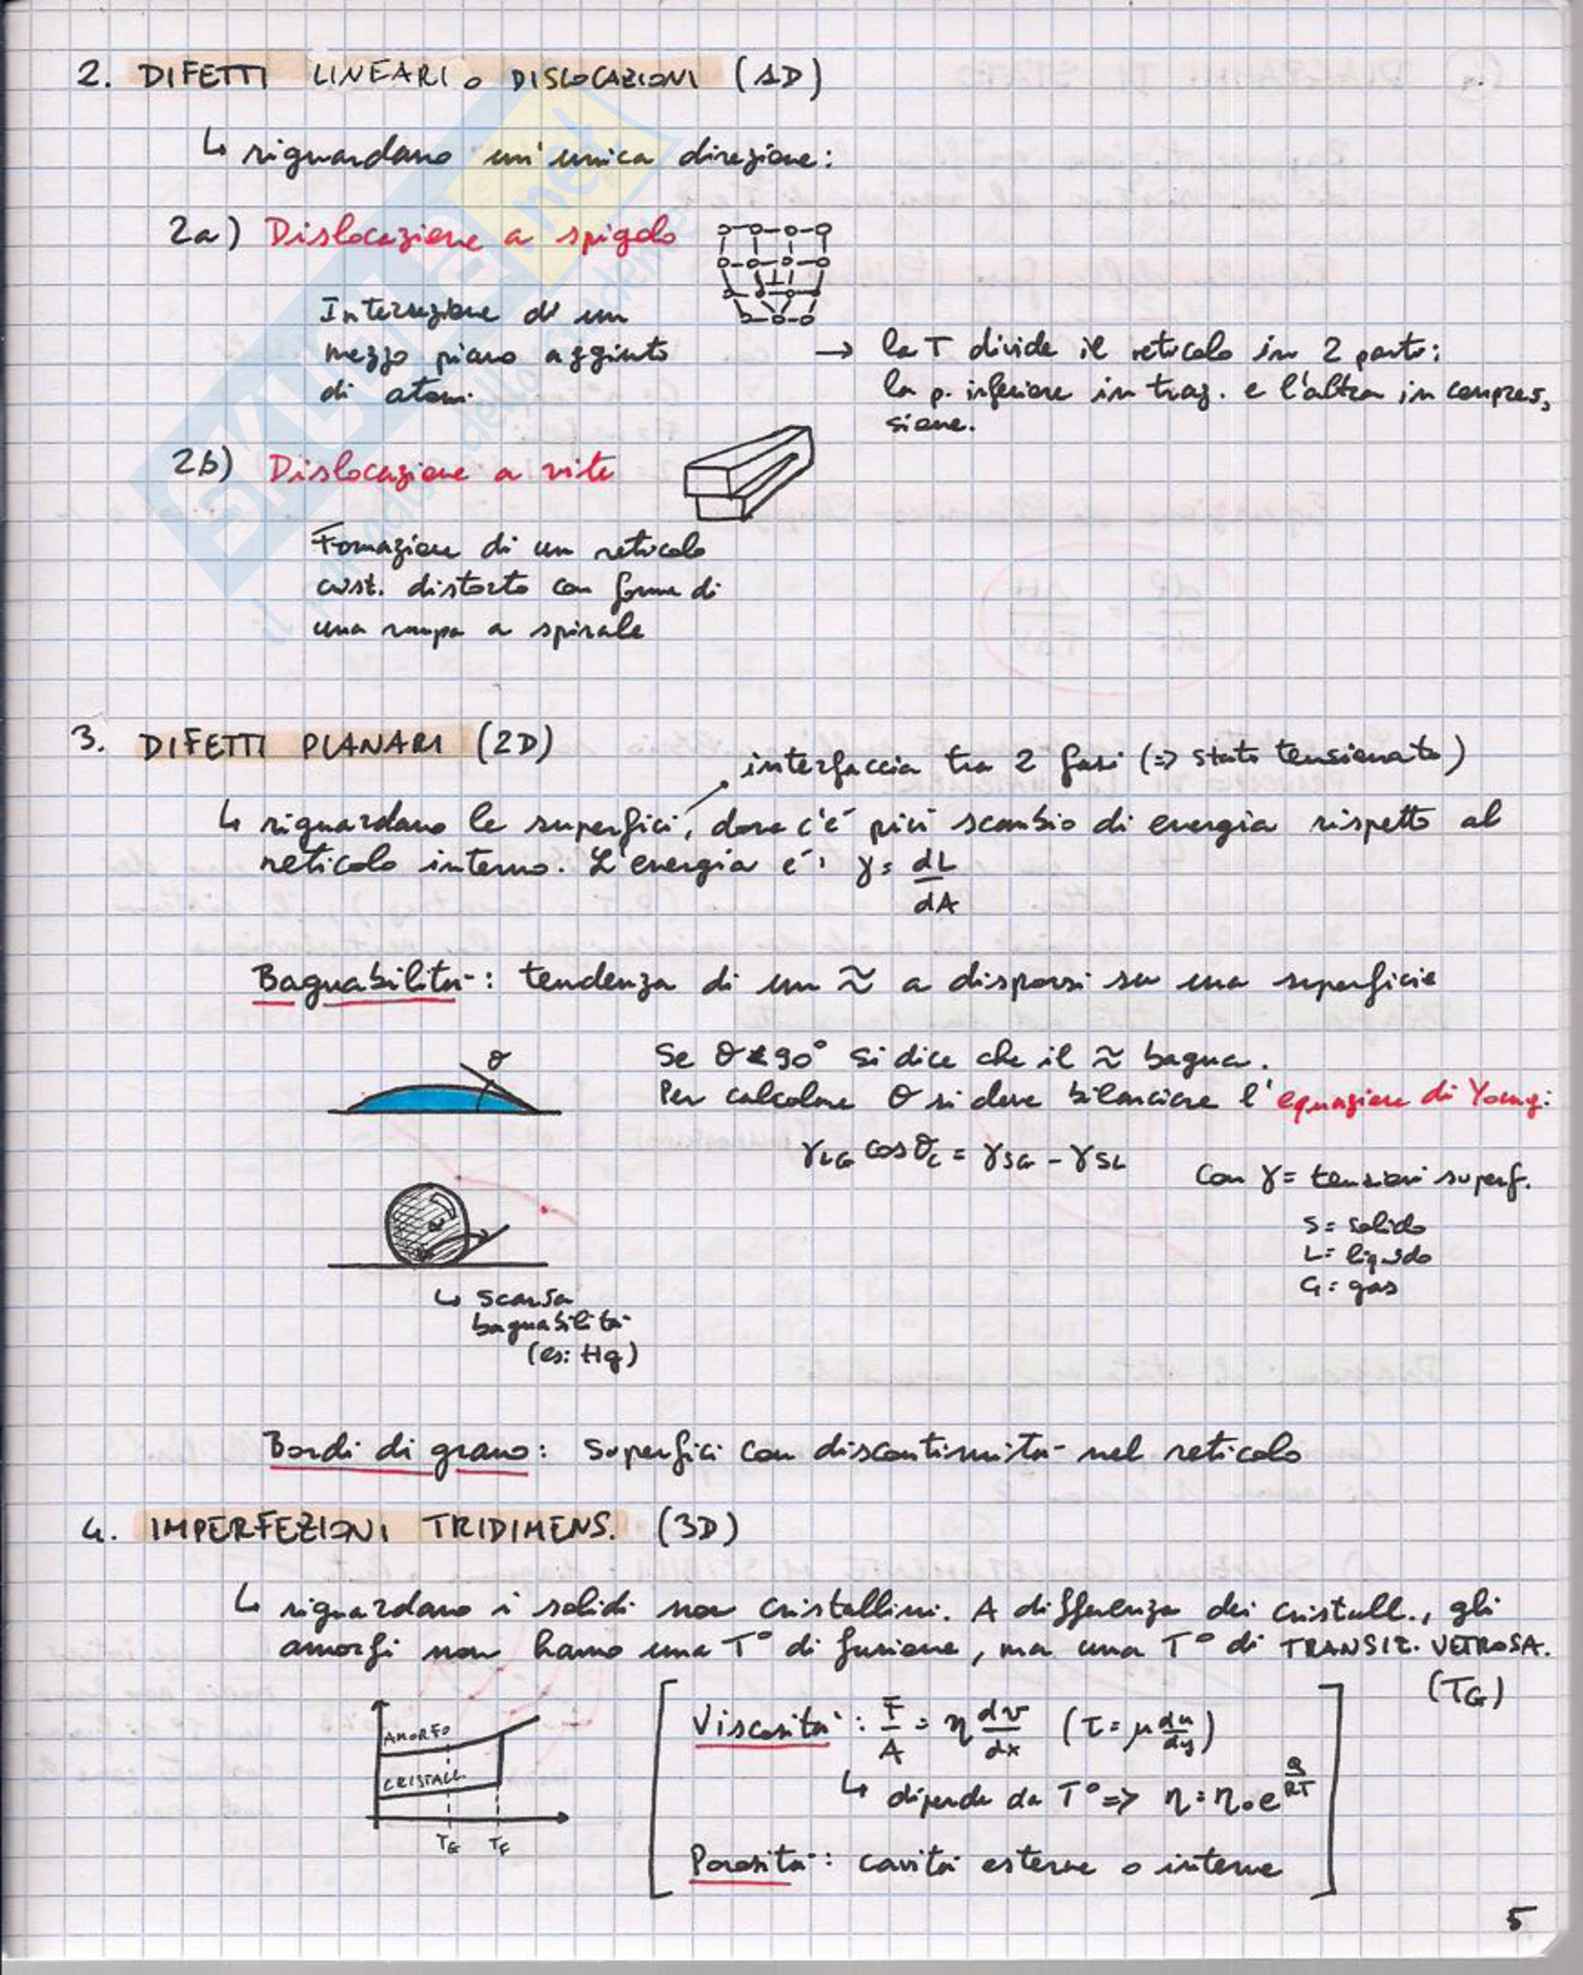 2. DIFETTI LINEARI o DISLOCAZIONI (1D)
↳ riguardano un'unica direzione:
2a) Dislocazione a spigolo
Interruzione di un
mezzo piano aggiunto
di atomi.
→ la T divide il reticolo in 2 parti:
la p. inferiore in traz. e l'altra in compres,
sione.
2b) Dislocazione a vite
Formazione di un reticolo
crist. distorto con forma di
una rampa a spirale
3. DIFETTI PLANARI (2D)
interfaccia tra 2 fasi (=> stato tensionato)
↳ riguardano le superfici, dove c'è più scambio di energia rispetto al
reticolo interno. L'energia è: γ = dL/dA
Bagnabilità: tendenza di un ≈ a disporsi su una superficie
θ
Se θ < 90° si dice che il ≈ bagna.
Per calcolare θ si deve bilanciare l'equazione di Young:
γLG cosθc = γSG - γSL
Con γ = tensioni superf.
S = solido
L = liquido
G = gas
↳ scarsa
bagnabilità
(es: Hg)
Bordi di grano: superfici con discontinuità nel reticolo
4. IMPERFEZIONI TRIDIMENS. (3D)
↳ riguardano i solidi non cristallini. A differenza dei cristall., gli
amorfi non hanno una T° di fusione, ma una T° di TRANSIZ. VETROSA.
(TG)
AMORFO
CRISTALL
TG TF
Viscosità: F/A = η dv/dx (τ = μ du/dy)
↳ dipende da T° => η = η₀ e^(Q/RT)
Porosità: cavità esterne o interne
5